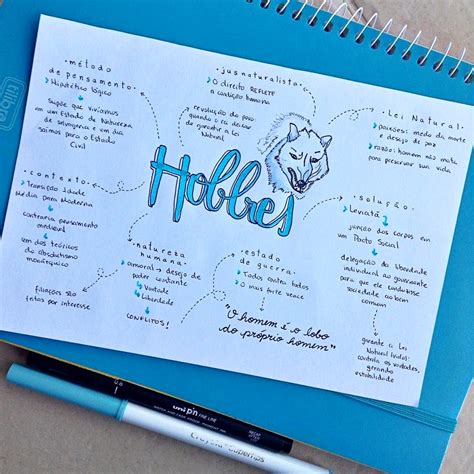 tilibra
• método
de pensamento:
Hipotético lógico
Supõe que vivíamos
em um Estado de Natureza
de selvageria e um dia
saímos para o Estado
Civil
• jusnaturalista:
O direito REFLETE
a condição humana
revolução do povo:
quando o rei deixar
de garantir a lei
Natural
• Lei Natural:
paixões: medo da morte
e desejo de paz
razão: homem não mata
para preservar sua vida
Hobbes
• contexto:
Transição Idade
Média para Moderna
contraria pensamento
medieval
um dos teóricos
do absolutismo
monárquico
Filiações são
feitas por interesse
• natureza
humana:
amoral → desejo de
poder constante
Vontade
Liberdade
CONFLITOS!
• estado
de guerra:
Todos contra todos
O mais forte vence
"O homem é o lobo
do próprio homem"
• solução:
Leviatã
junção dos corpos em
um Pacto Social
delegação da liberdade
individual ao governante
para que ele conduzisse
sociedade ao bem
comum
garante a Lei
Natural (vida):
controla as vontades,
gerando
estabilidade
0.8
uni pin FINE LINE
Crayola Supertips